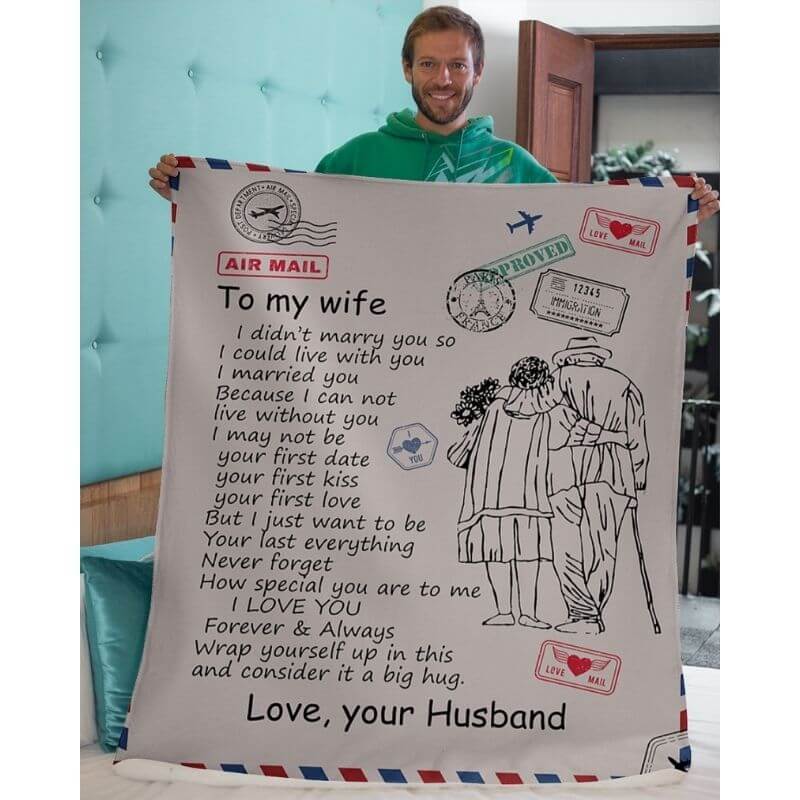 POST DEPARTMENT • AIR MAIL • SPECIAL
AIR MAIL
PROVED
LOVE MAIL
PARIS
FRANCE
12345
IMMIGRATION
To my wife
I didn't marry you so
I could live with you
I married you
Because I can not
live without you
I may not be
your first date
your first kiss
your first love
But I just want to be
Your last everything
Never forget
How special you are to me
I LOVE YOU
Forever & Always
Wrap yourself up in this
and consider it a big hug.
Love, your Husband
I
YOU
LOVE MAIL